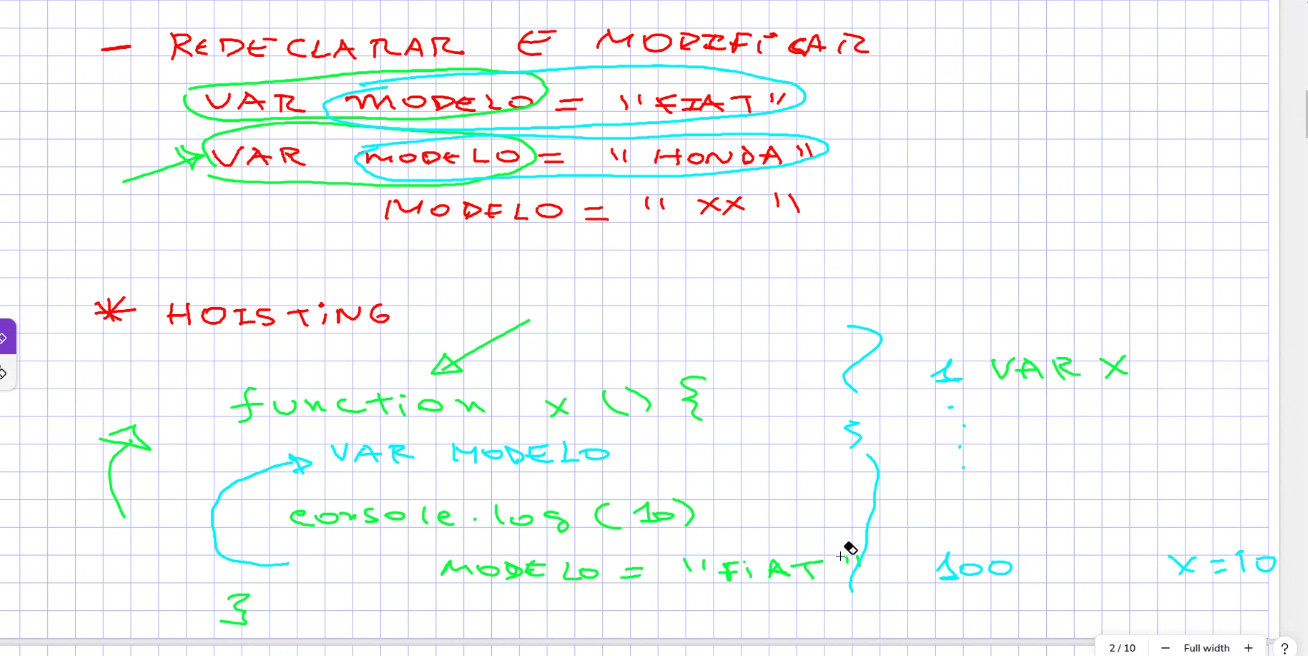 — REDECLARAR E MODIFICAR
VAR MODELO = "FIAT"
VAR MODELO = "HONDA"
MODELO = "XX"
* HOISTING
function x () {
VAR MODELO
console.log (10)
MODELO = "FiAT"
}
1 VAR X
100 X = 10
2 / 10 — Full width + ?